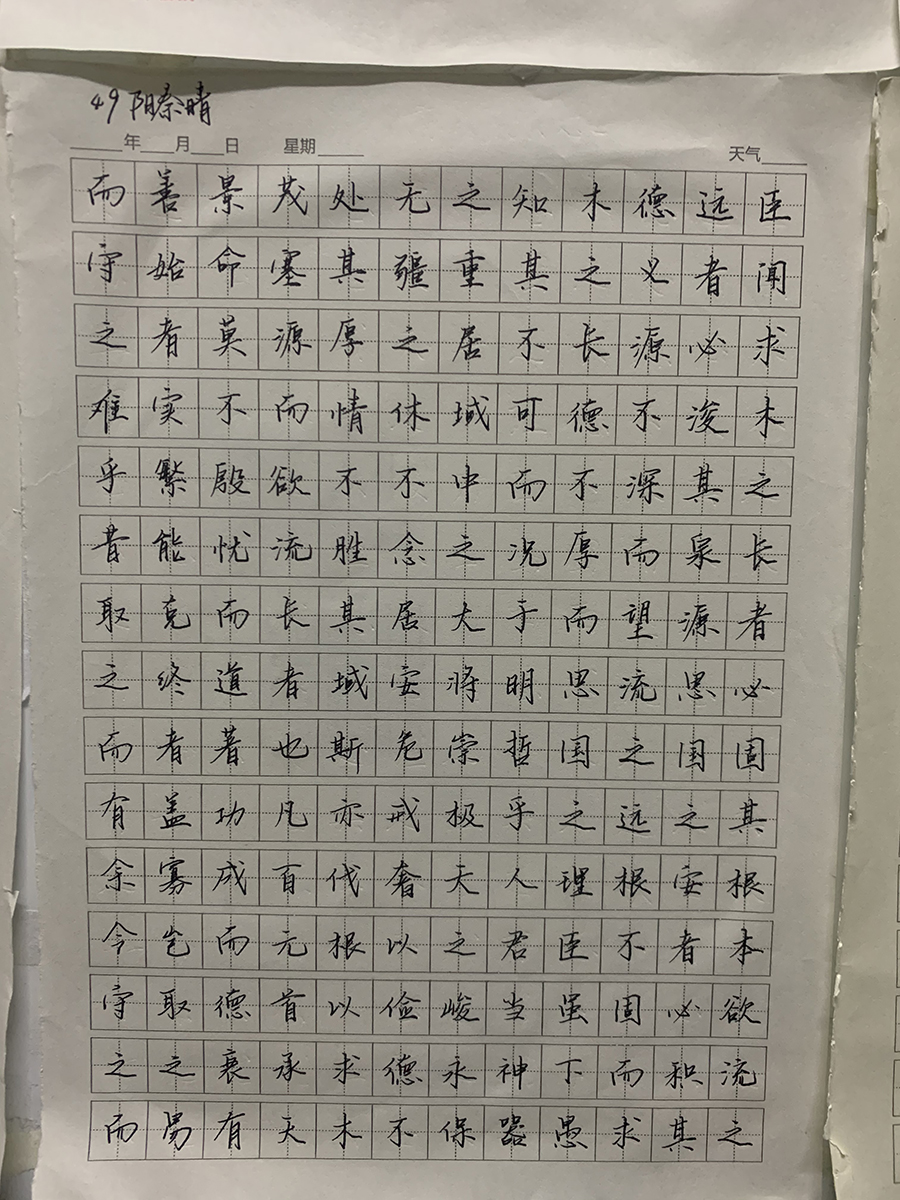 49 阳秦晴
____年___月___日 星期____ 天气____
臣闻求木之长者必固其根本欲流之
远者必浚其泉源思国之安者必积其
德义源不深而望流之远根不固而求
木之长德不厚而思国之理臣虽下愚
知其不可而况于明哲乎人君当神器
之重居域中之大将崇极天之峻永保
无疆之休不念居安危戒奢以俭德不
处其厚情不胜其域斯亦代根以求木
茂塞源而欲流长者也凡百元首承天
景命莫不殷忧而道著功成而德衰有
善始者实繁能克终者盖寡岂取之易
而守之难乎昔取之而有余今守之而